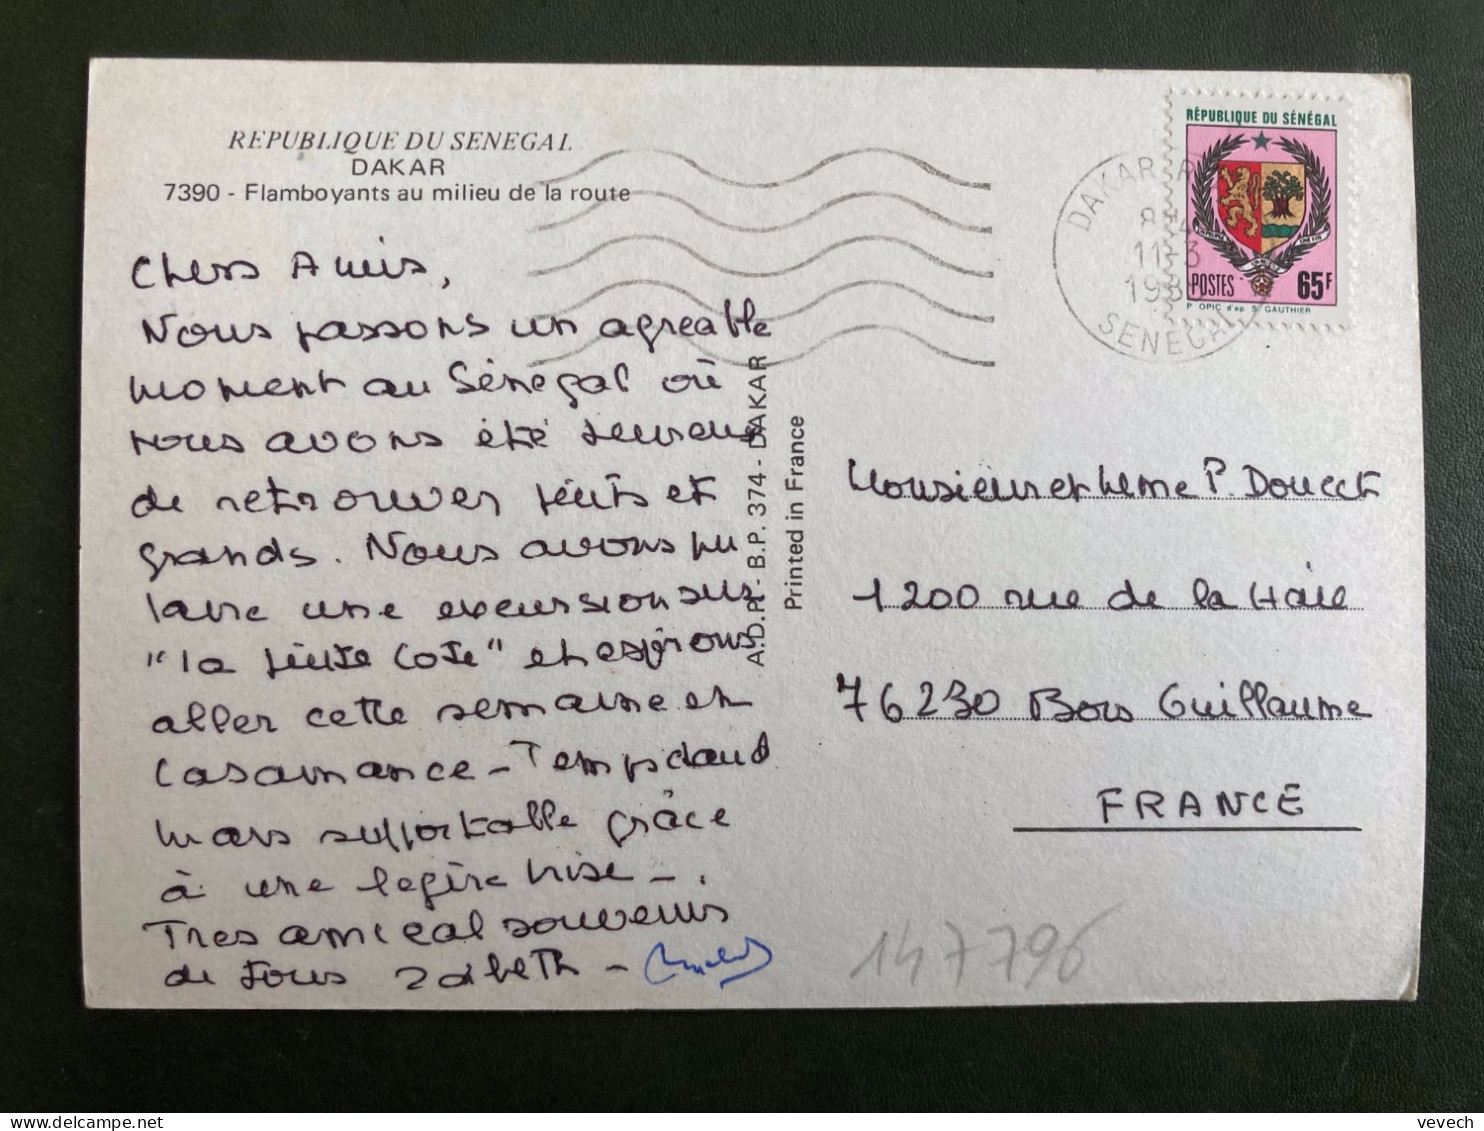 REPUBLIQUE DU SENEGAL
DAKAR
7390 - Flamboyants au milieu de la route
Chers Amis,
Nous passons un agreable
moment au Sénégal où
nous avons été heureux
de retrouver petits et
grands. Nous avons pu
faire une excursion sur
"la petite Cote" et espérons
aller cette semaine en
Casamance - Temps chaud
mais supportable grâce
à une legère brise - .
Tres amical souvenirs
de tous
A.D.P. - B.P. 374 - DAKAR
Printed in France
RÉPUBLIQUE DU SÉNÉGAL
POSTES 65F
P OPIC d'ap S GAUTHIER
DAKAR
11-3
SENEGAL
Monsieur et Mme P. Doucet
1200 rue de la Haie
76230 Bois Guillaume
FRANCE
147796
vevech